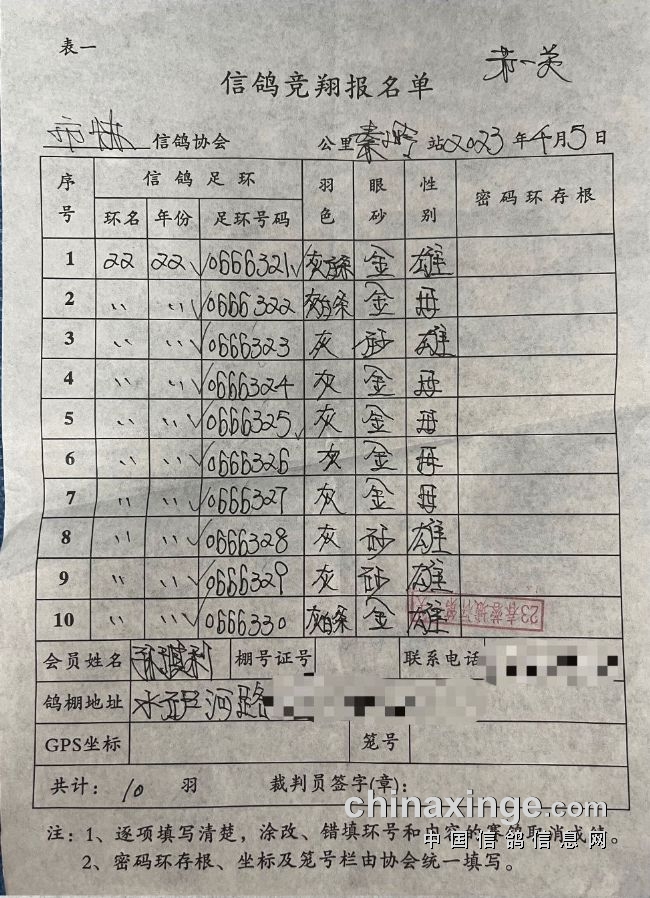 表一
第一关
信鸽竞翔报名单
信鸽协会 公里秦岭站2023年4月5日
序号 信鸽足环 羽色 眼砂 性别 密码环存根
环名 年份 足环号码
1 22 22 0666321 灰白条 金 雄
2 〃 〃 0666322 灰白条 金 母
3 〃 〃 0666323 灰 砂 雄
4 〃 〃 0666324 灰 金 母
5 〃 〃 0666325 灰 金 母
6 〃 〃 0666326 灰 金 母
7 〃 〃 0666327 灰 金 母
8 〃 〃 0666328 灰 砂 雄
9 〃 〃 0666329 灰 砂 雄
10 〃 〃 0666330 灰白条 金 雄
会员姓名 棚号证号 联系电话
鸽棚地址 河路
GPS坐标 笼号
共计：10 羽 裁判员签字(章)：
chinaxinge.com
注：1、逐项填写清楚，涂改、错填环号和内容的赛鸽取消成绩。
中国信鸽信息网
2、密码环存根、坐标及笼号栏由协会统一填写。